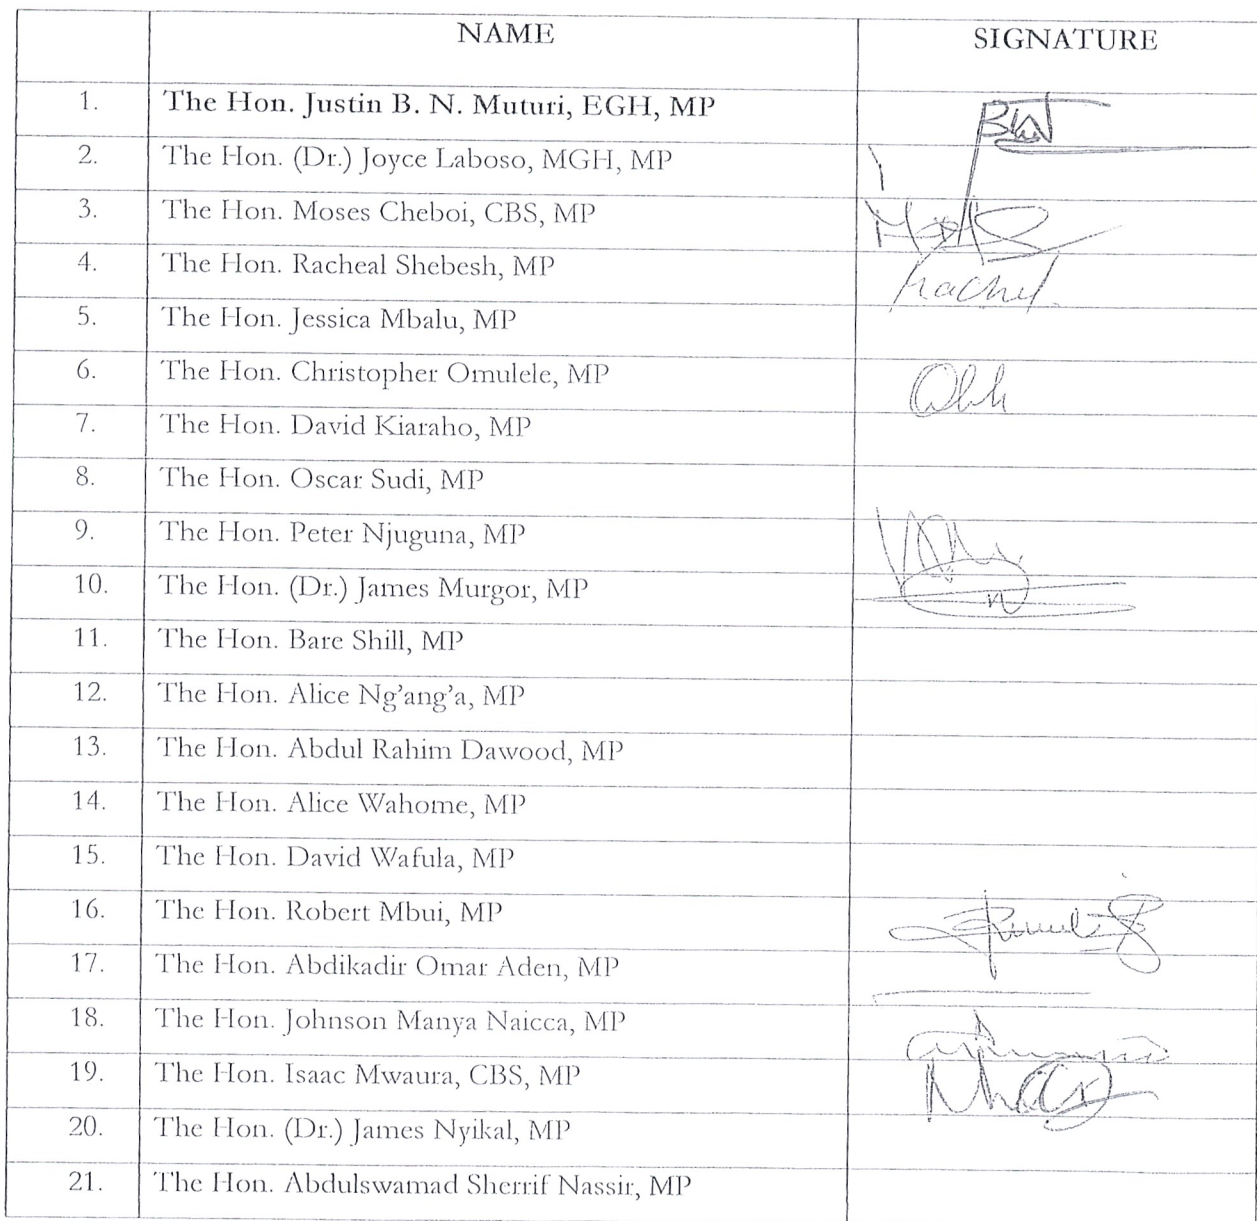 NAME SIGNATURE
1. The Hon. Justin B. N. Muturi, EGH, MP
2. The Hon. (Dr.) Joyce Laboso, MGH, MP
3. The Hon. Moses Cheboi, CBS, MP
4. The Hon. Racheal Shebesh, MP Rachel.
5. The Hon. Jessica Mbalu, MP
6. The Hon. Christopher Omulele, MP
7. The Hon. David Kiaraho, MP
8. The Hon. Oscar Sudi, MP
9. The Hon. Peter Njuguna, MP
10. The Hon. (Dr.) James Murgor, MP
11. The Hon. Bare Shill, MP
12. The Hon. Alice Ng'ang'a, MP
13. The Hon. Abdul Rahim Dawood, MP
14. The Hon. Alice Wahome, MP
15. The Hon. David Wafula, MP
16. The Hon. Robert Mbui, MP
17. The Hon. Abdikadir Omar Aden, MP
18. The Hon. Johnson Manya Naicca, MP
19. The Hon. Isaac Mwaura, CBS, MP
20. The Hon. (Dr.) James Nyikal, MP
21. The Hon. Abdulswamad Sherrif Nassir, MP